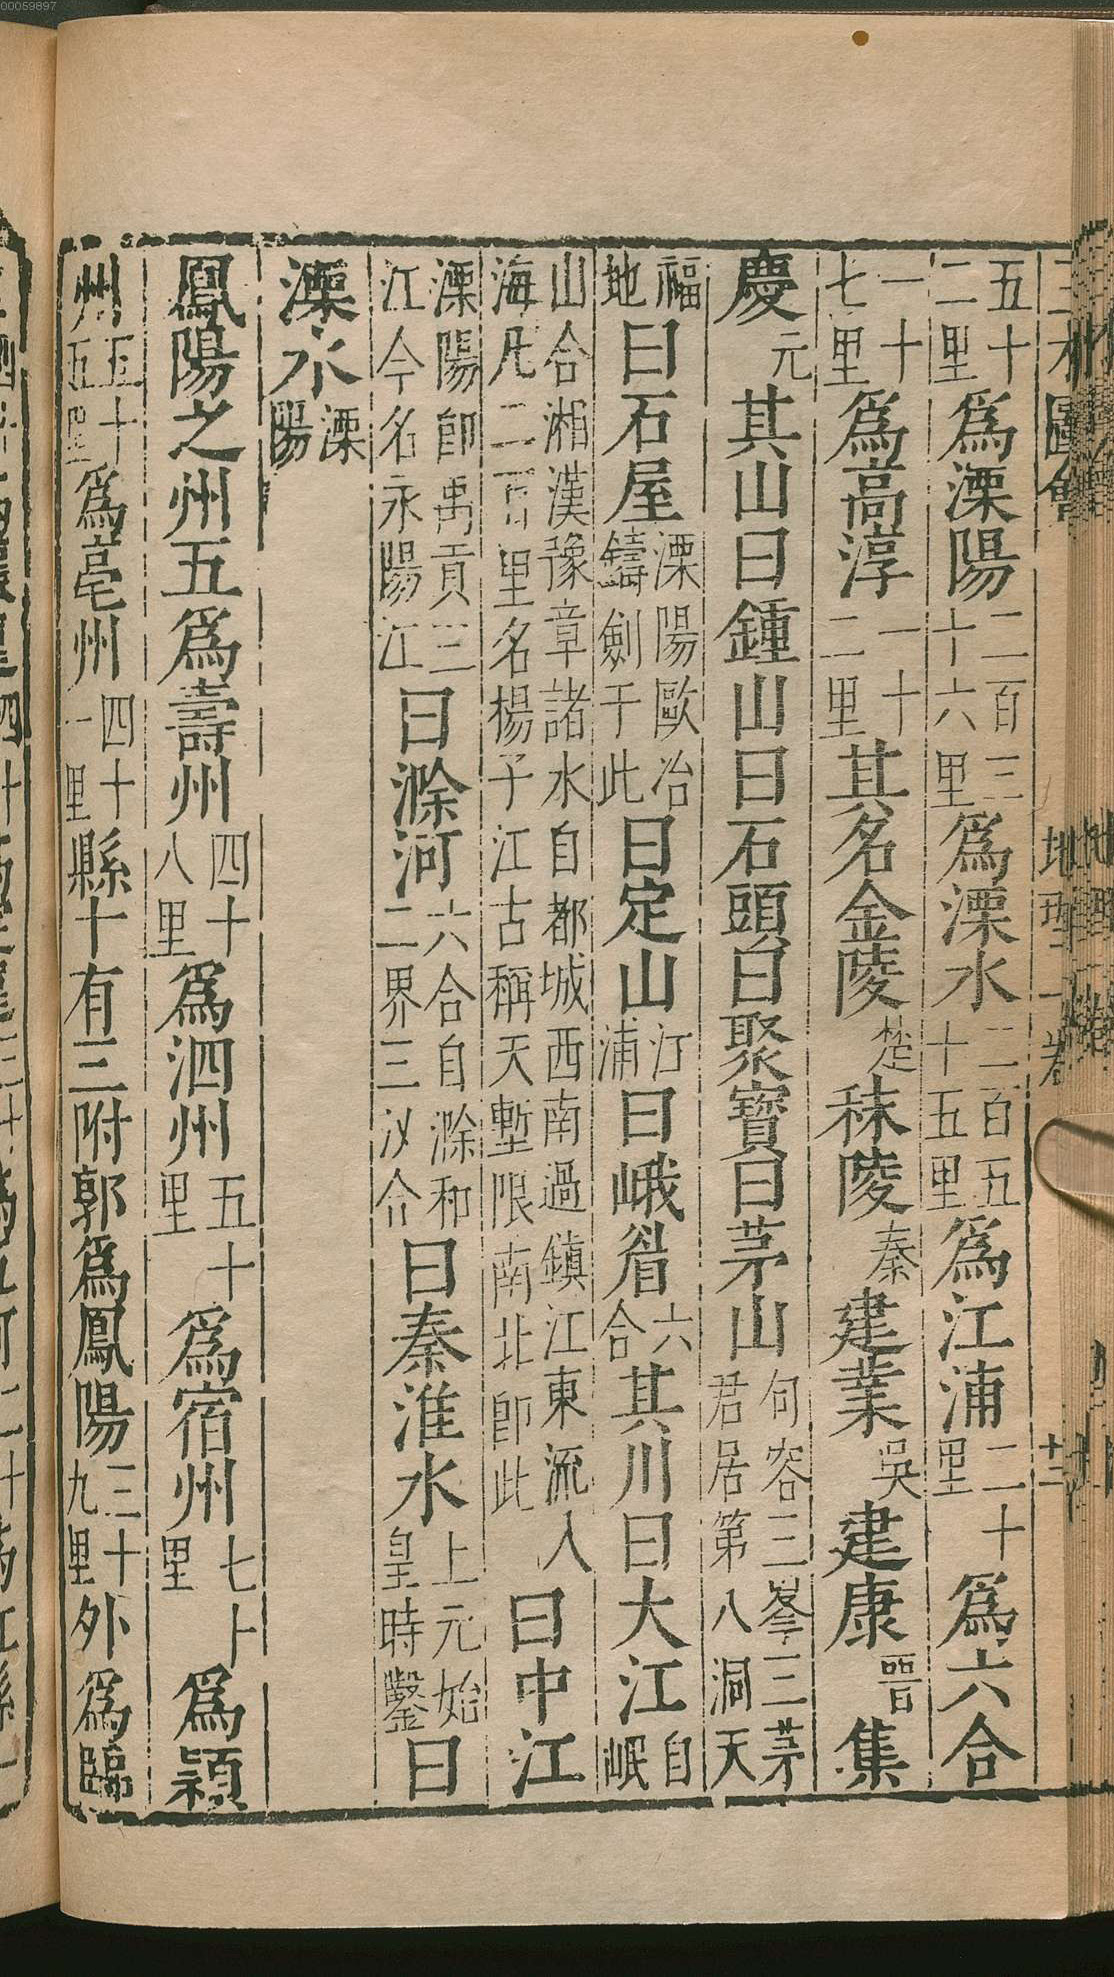 五十二里為溧陽二百三十六里為溧水二百五十五里為江浦二十里為六合
一十七里為高淳一十二里其名金陵楚秣陵秦建業吳建康晉集
慶元其山曰鍾山曰石頭曰聚寶曰茅山句容三峯三茅君居第八洞天
福地曰石屋溧陽歐冶鑄劍于此曰定山江浦曰峨眉六合其川曰大江自岷
山合湘漢豫章諸水自都城西南過鎮江東流入海凡二百里名楊子江古稱天塹限南北即此曰中江
溧陽即禹貢三江今名永陽江曰滁河六合自滁和二界三汊合曰秦淮水上元始皇時鑿曰
溧水溧陽
鳳陽之州五為壽州四十八里為泗州五十里為宿州七十里為潁
州五十五里為亳州四十一里縣十有三附郭為鳳陽三十九里外為臨
三才圖會 地理二卷 十三
00059897